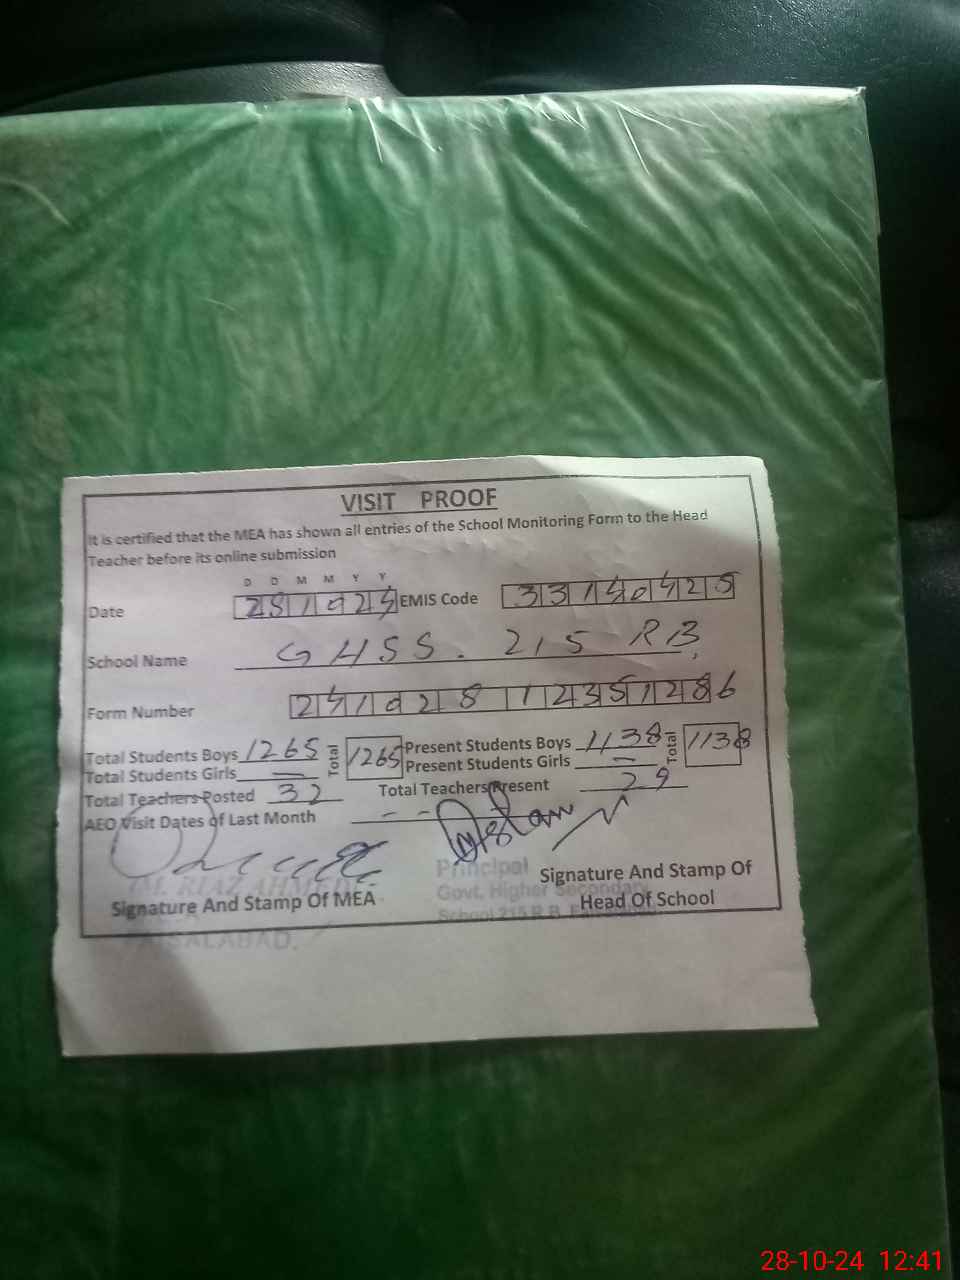 VISIT PROOF
It is certified that the MEA has shown all entries of the School Monitoring Form to the Head
Teacher before its online submission
D D M M Y Y
Date 281024 EMIS Code 33140425
School Name GHSS. 215 RB,
Form Number 241028 12351286
Total Students Boys 1265 Total 1265 Present Students Boys 1138 Total 1138
Total Students Girls — Present Students Girls —
Total Teachers Posted 32 Total Teachers Present 29
AEO Visit Dates of Last Month - -
M. RIAZ AHMED
Signature And Stamp Of MEA
FAISALABAD.
Principal
Govt. Higher Secondary
School 215 R.B. Faisalabad
Signature And Stamp Of
Head Of School
28-10-24 12:41